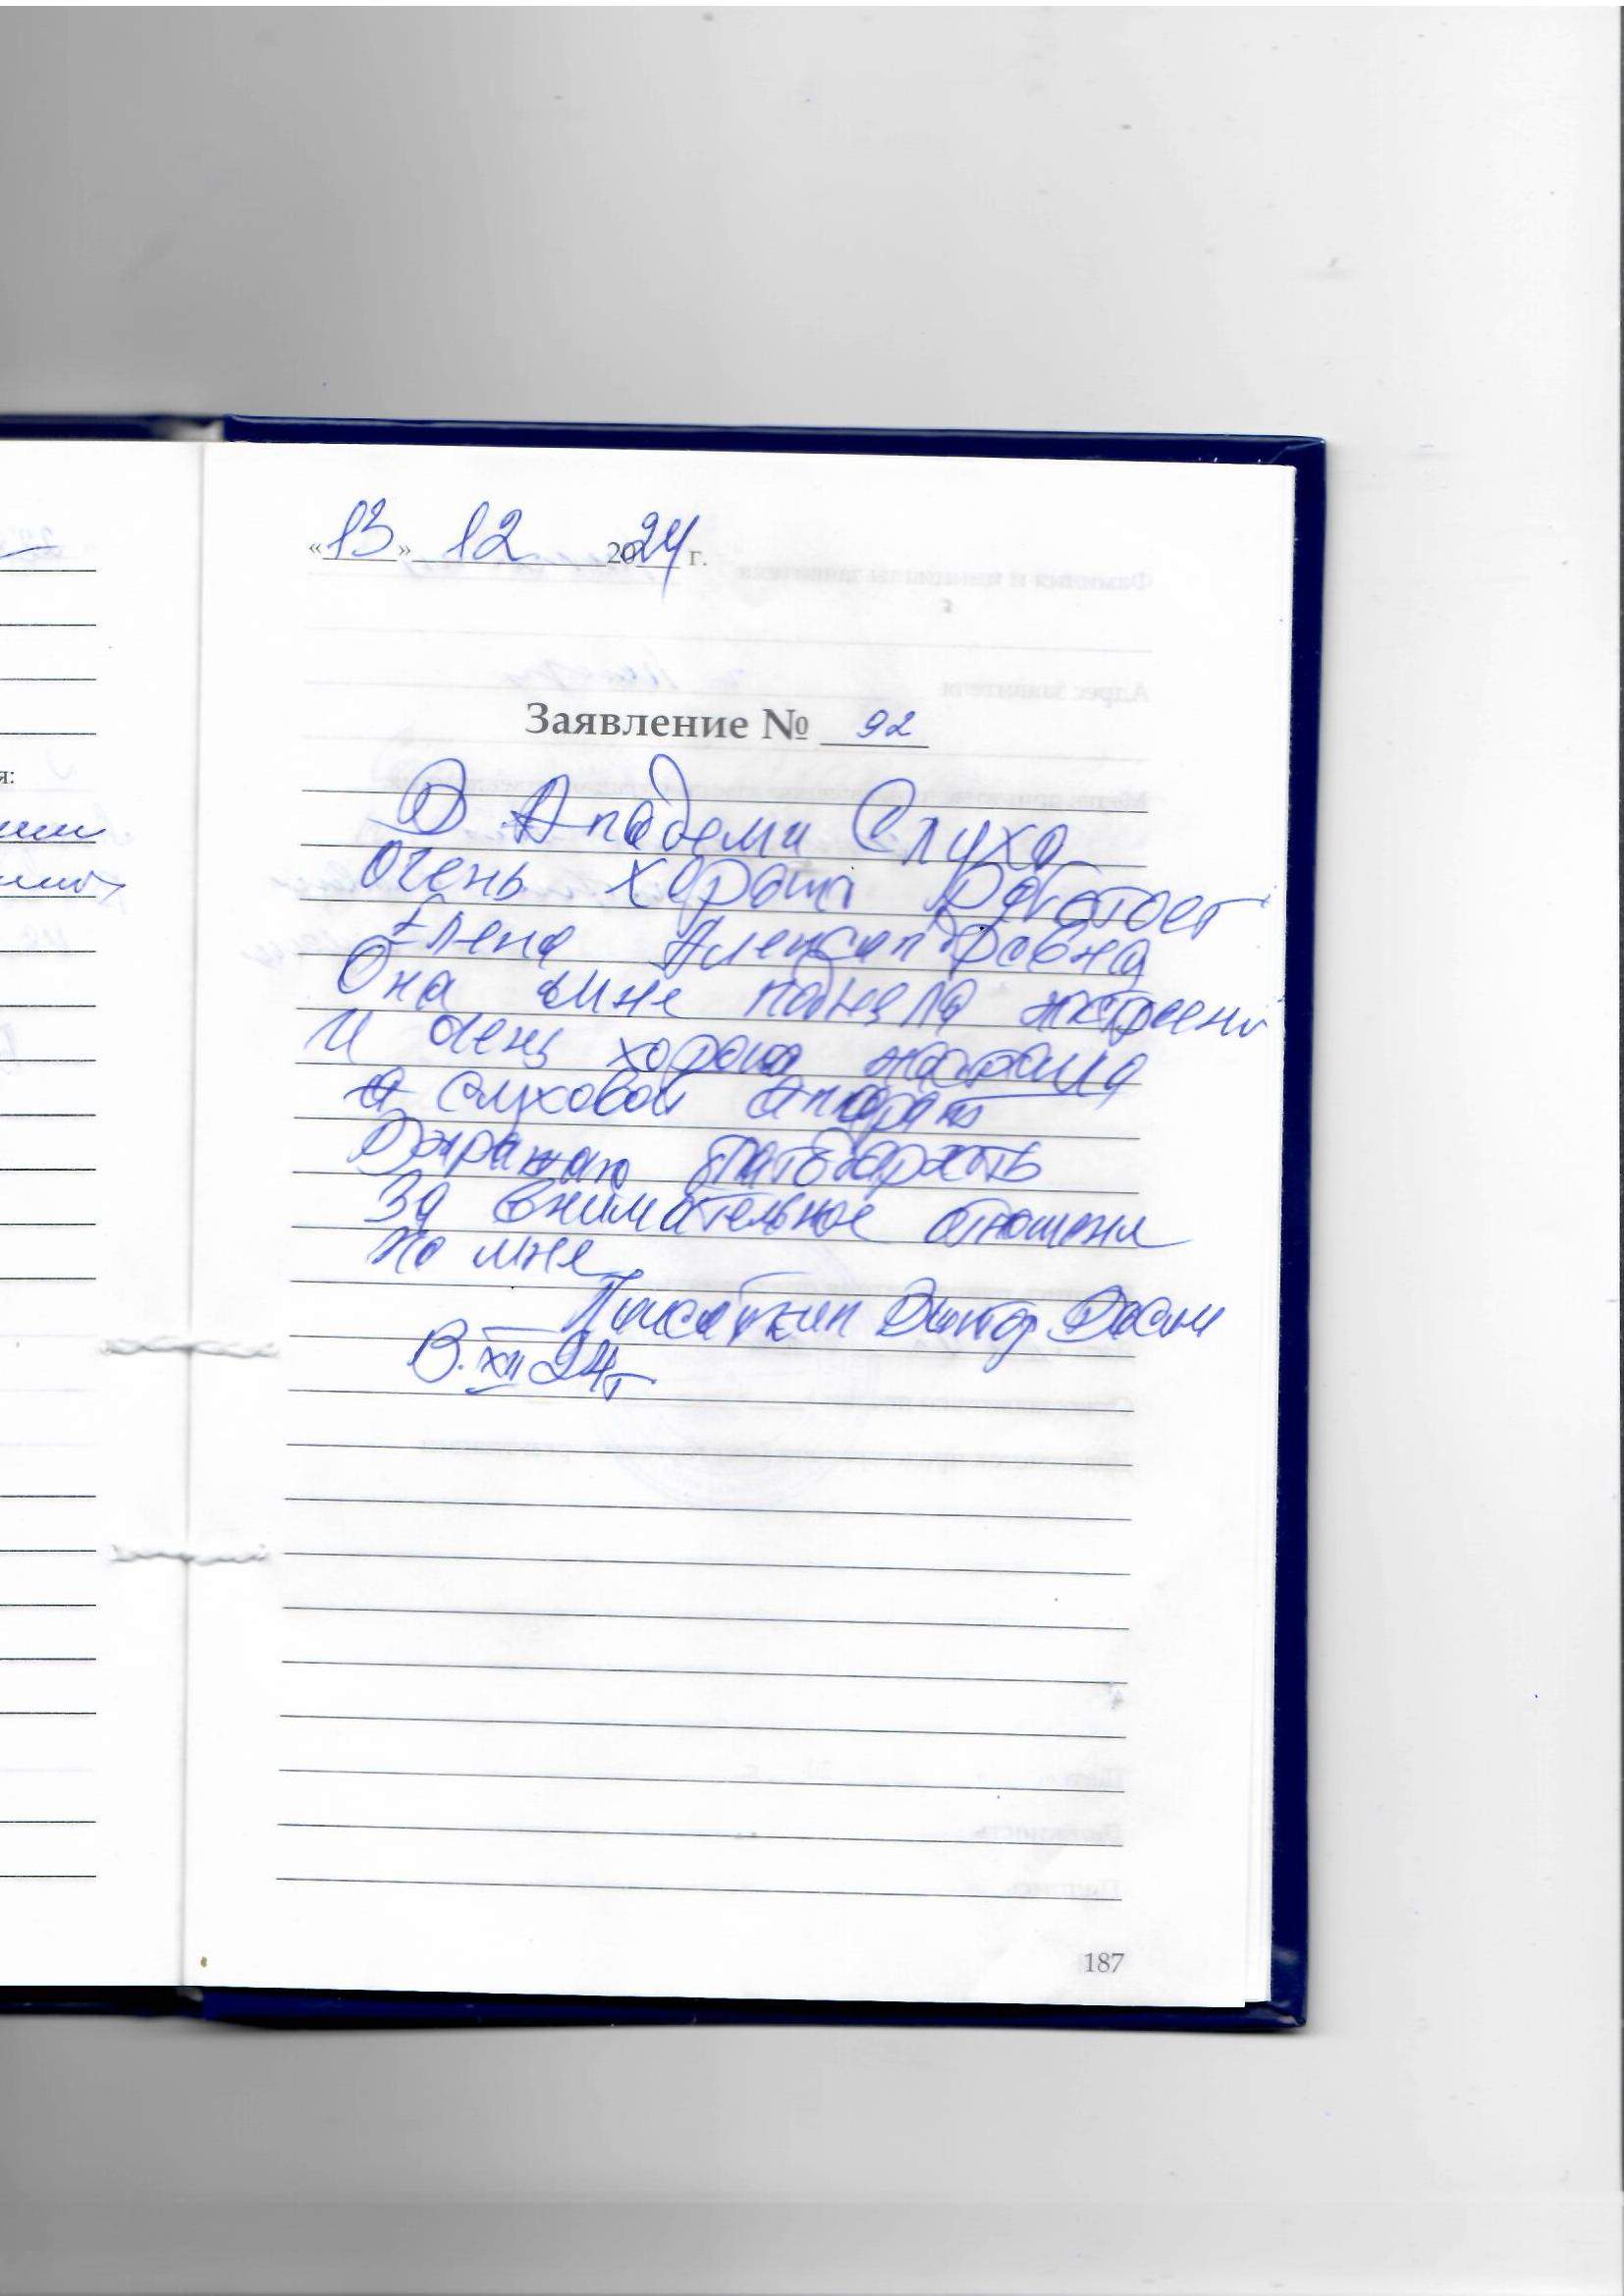 «13» 12 2024 г.
Заявление № 92
В Академи Слуха
очень хорошо работает
Елена Александровна
Она мне подняла настроени
и очень хорошо настроила
слуховой аппарат
Выражаю благодарность
за внимательное отношени
ко мне
Виктор
13.XII 24г
я:
187